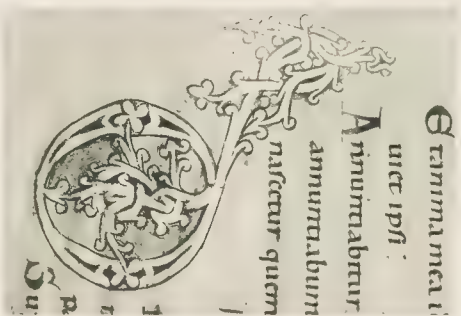 Et anima mea
uiet ipsi:
Annuntiabitur
annuntiabunt
naſcetur quem